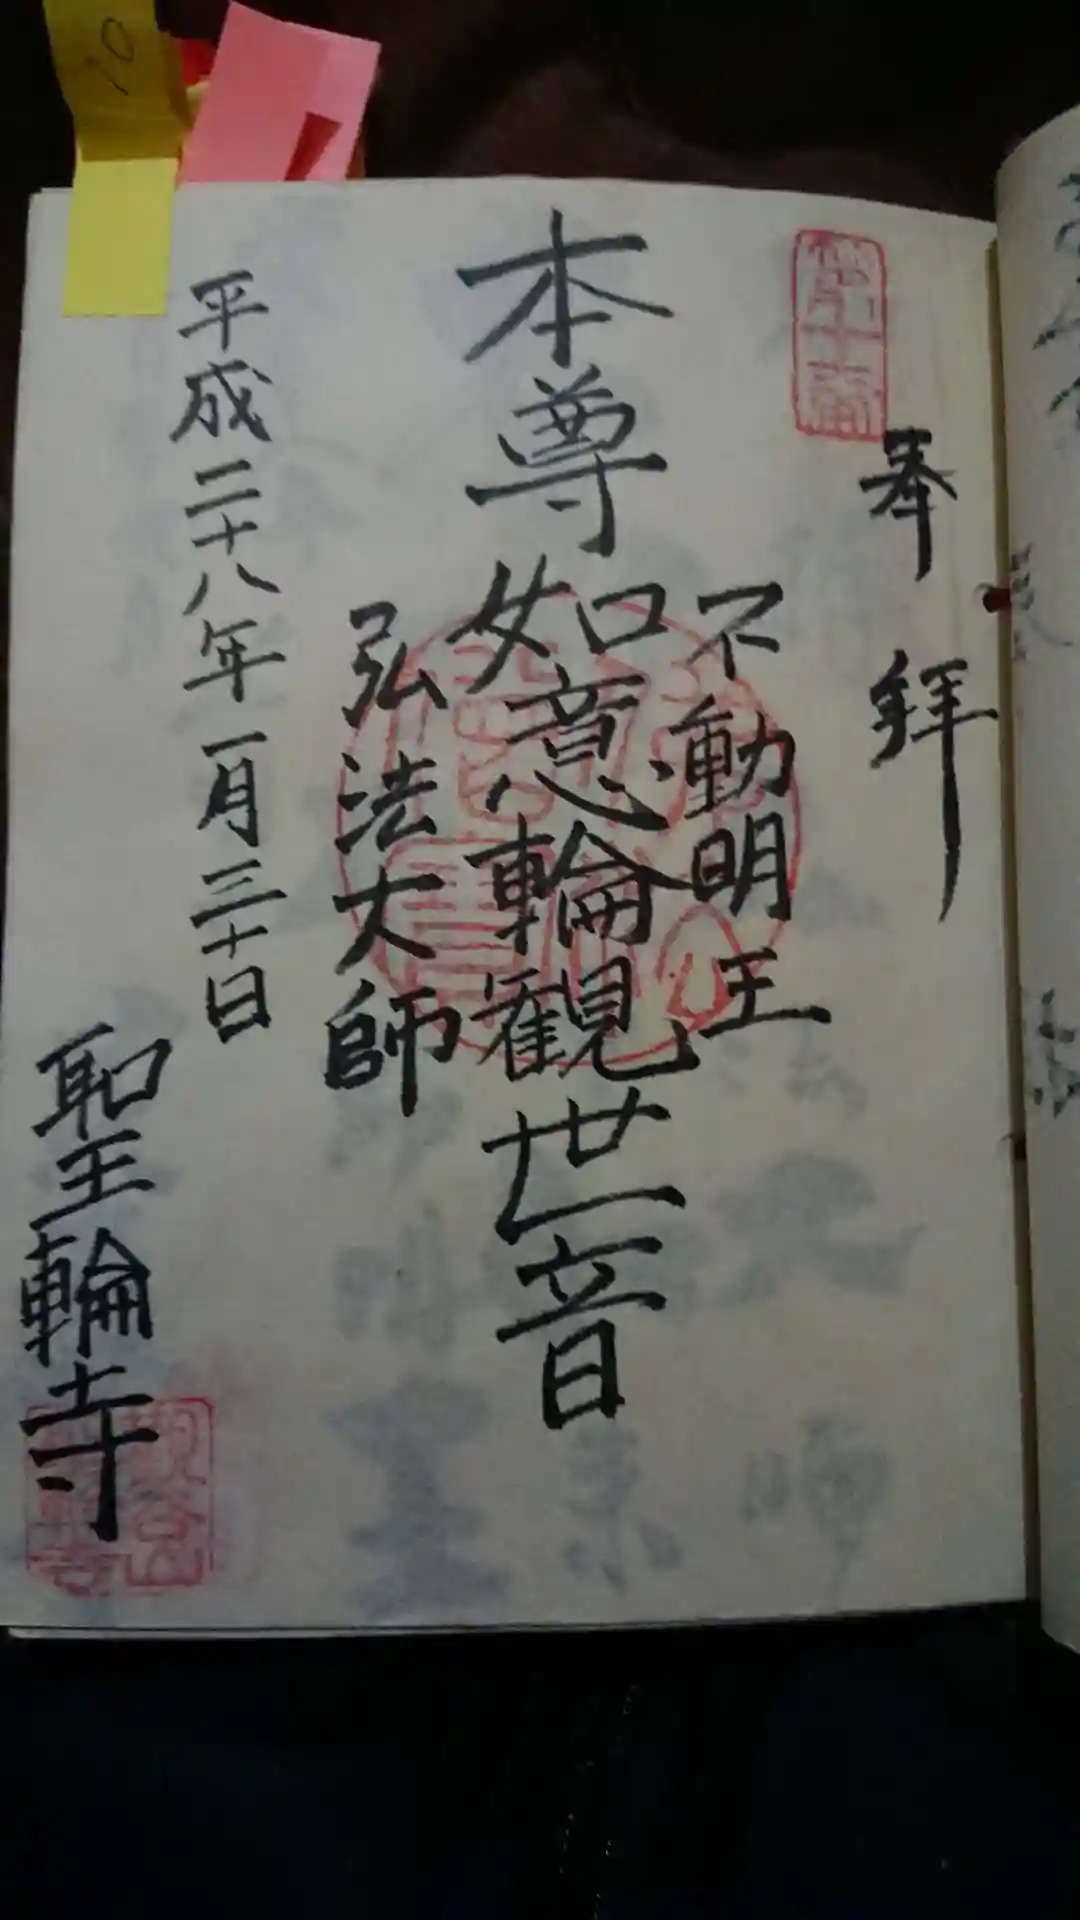 奉拝
第十番
不動明王
本尊 如意輪観世音
弘法大師
平成二十八年一月三十日
聖輪寺
10